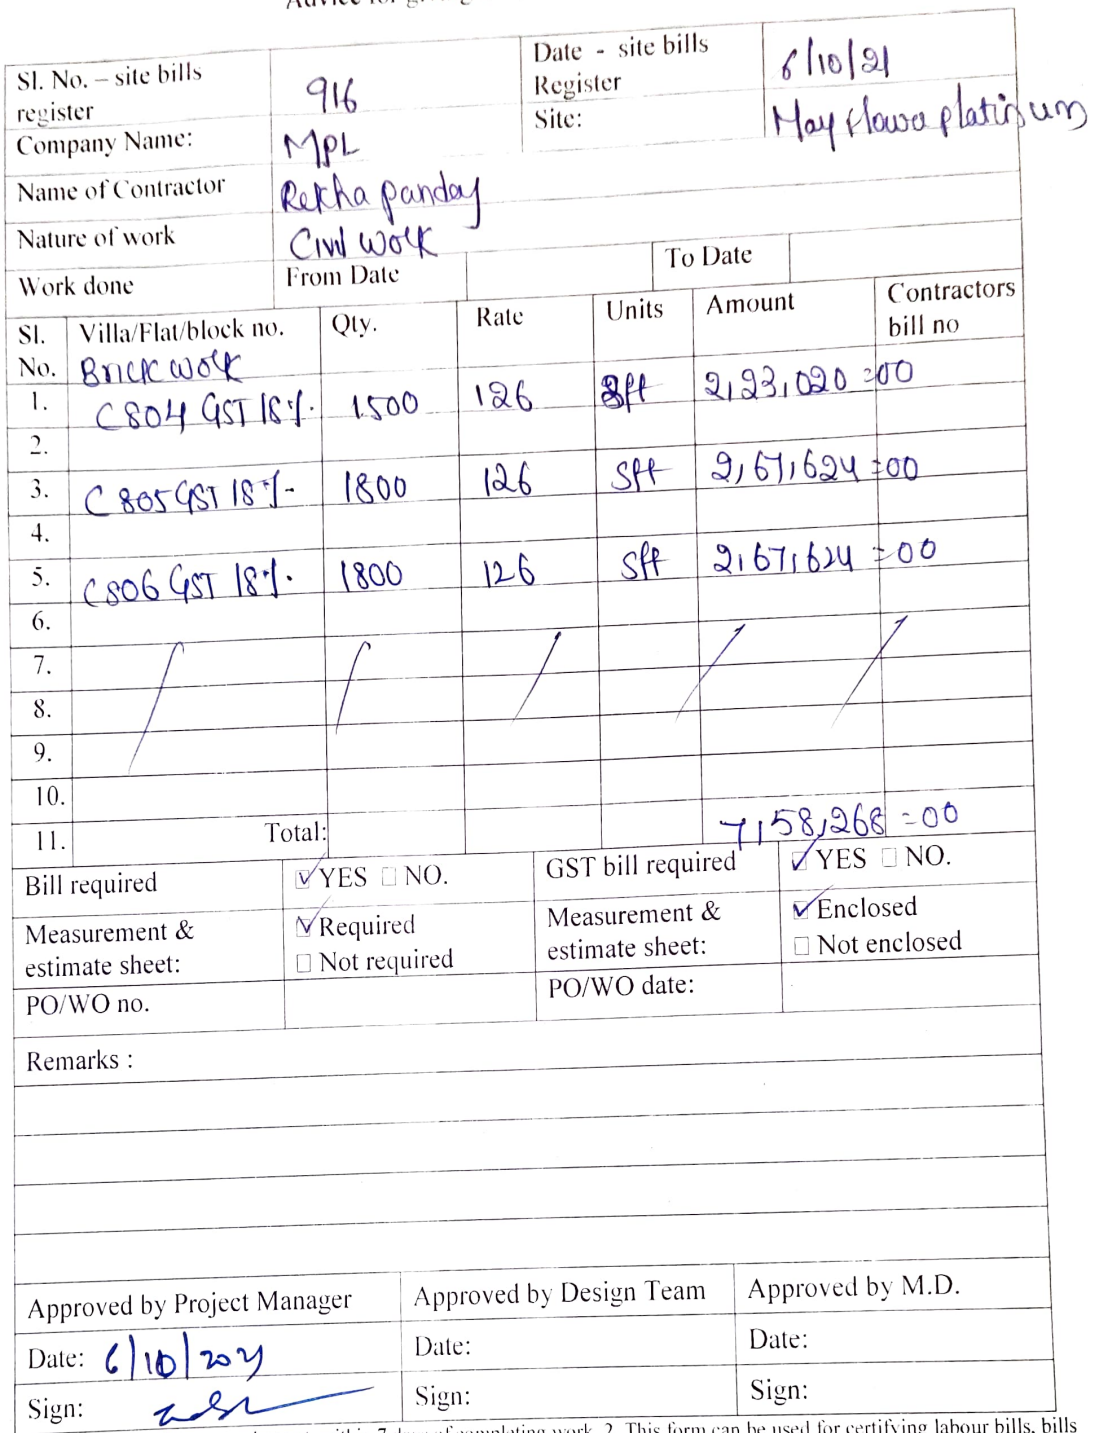 Sl. No. – site bills register 916 Date - site bills Register 6/10/21
Company Name: MPL Site: Mayflower platinum
Name of Contractor Rekha panday
Nature of work Civil work
Work done From Date To Date
Sl. No. Villa/Flat/block no. Qty. Rate Units Amount Contractors bill no
Brick work
1. C804 GST 18%. 1500 126 sft 2,23,020=00
2.
3. C805 GST 18%- 1800 126 sft 2,67,624=00
4.
5. C806 GST 18%. 1800 126 sft 2,67,624=00
6.
7.
8.
9.
10.
11. Total: 7,58,268=00
Bill required YES NO. GST bill required YES NO.
Measurement & estimate sheet: Required Not required Measurement & estimate sheet: Enclosed Not enclosed
PO/WO no. PO/WO date:
Remarks :
Approved by Project Manager Approved by Design Team Approved by M.D.
Date: 6/10/2021 Date: Date:
Sign: Sign: Sign:
completing work. 2. This form can be used for certifying labour bills, bills